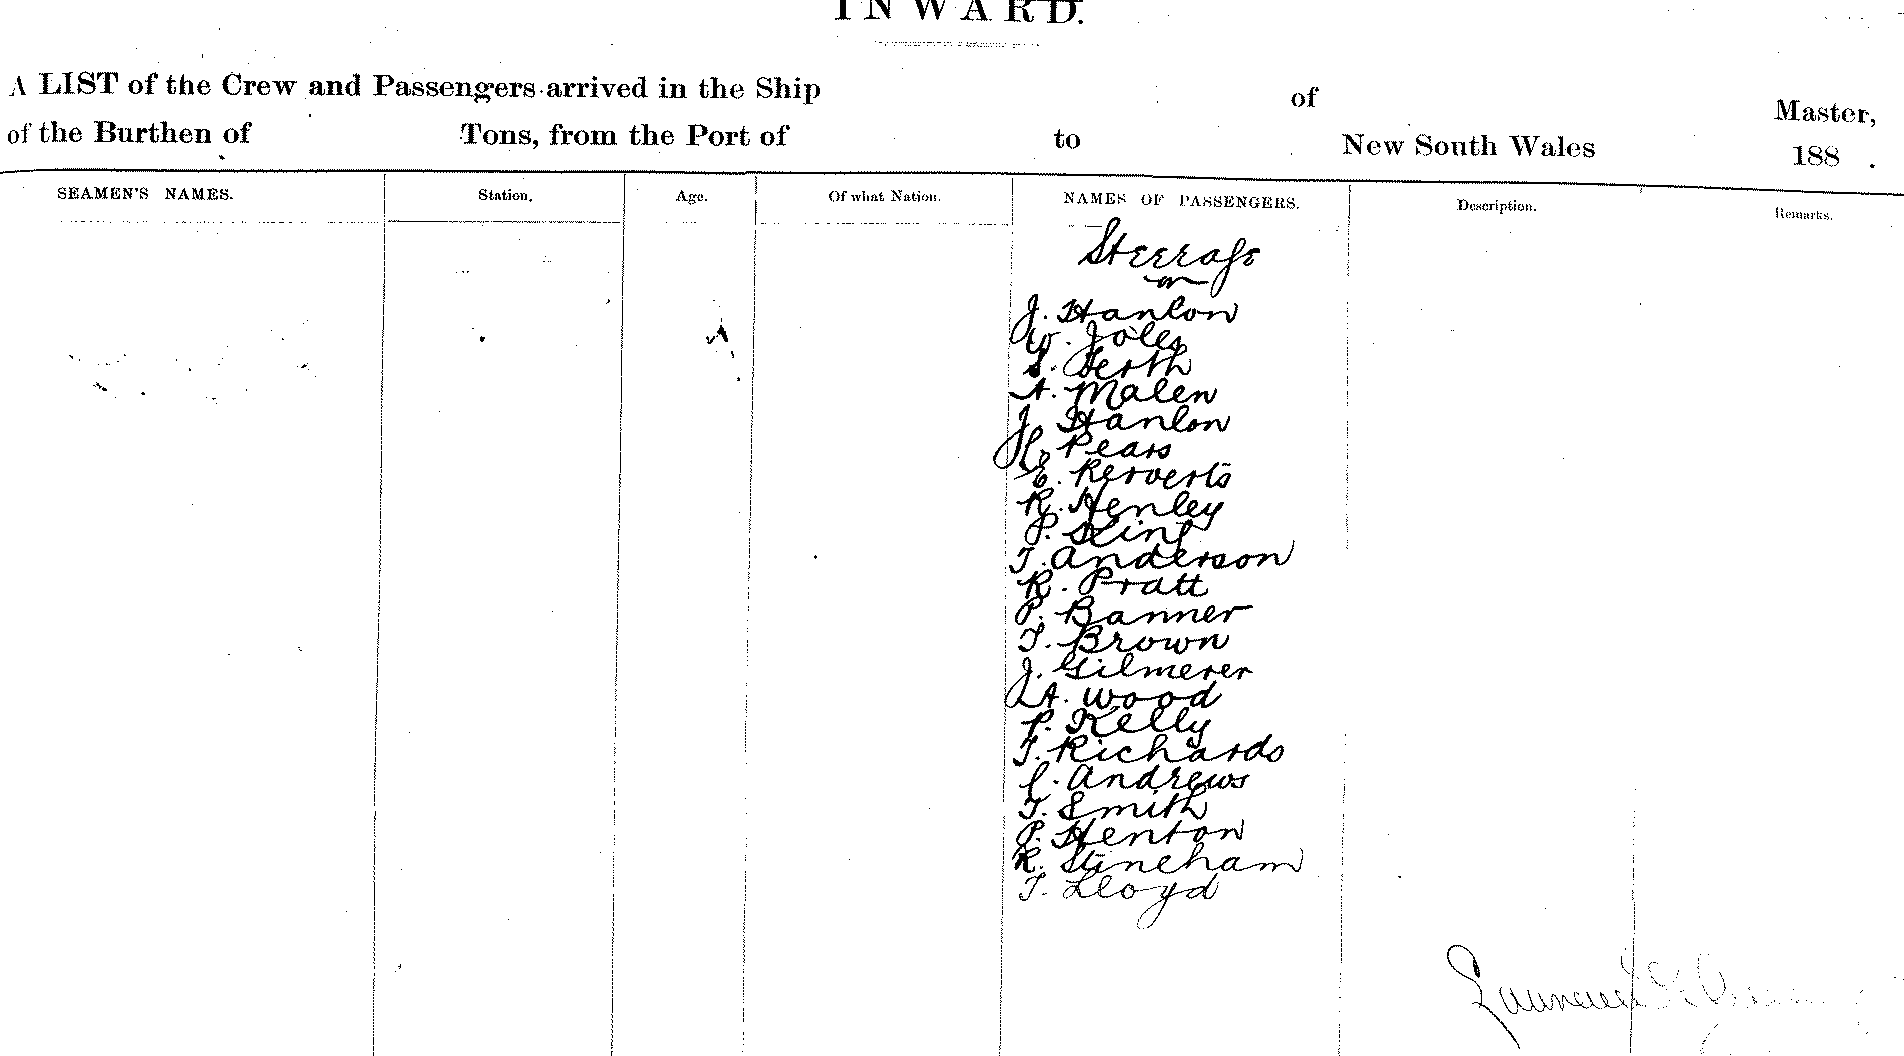 INWARD.
A LIST of the Crew and Passengers arrived in the Ship of Master,
of the Burthen of Tons, from the Port of to New South Wales 188 .
SEAMEN'S NAMES. Station. Age. Of what Nation. NAMES OF PASSENGERS. Description. Remarks.
Steerage
J. Hanlon
W. Joles
S. Ferth
A. Malen
J. Hanlon
H. Pears
E. Rerverts
R. Henley
P. King
T. Anderson
R. Pratt
P. Banner
T. Brown
J. Gilmerer
A. Wood
P. Kelly
T. Richards
C. Andrews
T. Smith
P. Henton
R. Stineham
T. Lloyd